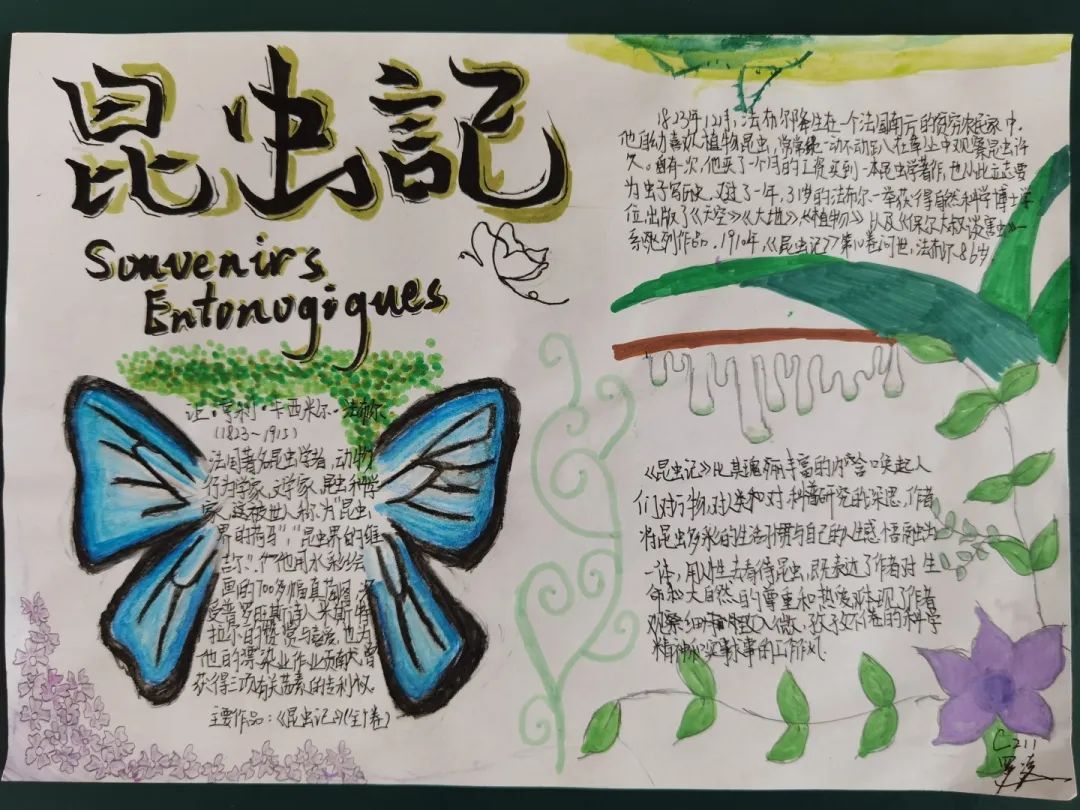 昆虫記
Souvenirs
Entonogigues
1823年12月,法布尔降生在一个法国南方的贫穷农民家中.
他自幼喜欢植物昆虫,常常一动不动趴在草丛中观察昆虫许
久。有一次,他买了一个月的工资买到一本昆虫学著作,也从此立志要
为虫子写历史.又过了一年,31岁的法布尔一举获得自然科学博士学
位,出版了《天空》《大地》《植物》以及《保尔大叔谈害虫》一
系列作品.1910年,《昆虫记》第10卷问世,法布尔86岁
让·亨利·卡西米尔·法布尔
(1823~1915)
法国著名昆虫学者,动物
行为学家、文学家、昆虫科学
家,被世人称为"昆虫
界的荷马","昆虫界的维
吉尔".他用水彩绘
画的700多幅真菌图,深
受普罗旺斯诗人米斯特
拉尔的赞赏与喜爱.也为
他的漂染业作业贡献,曾
获得三项有关茜素的专利权.
主要作品:《昆虫记》(全十卷)
《昆虫记》以其瑰丽丰富的内含唤起人
们对万物,对人类和对科普研究的深思,作者
将昆虫多彩的生活与自己的人生感悟融为
一体,用人性去看待昆虫,既表达了作者对生
命和大自然的尊重和热爱,体现了作者
观察细入微、孜孜不倦的科学
精神和实事的工作作风.
C211